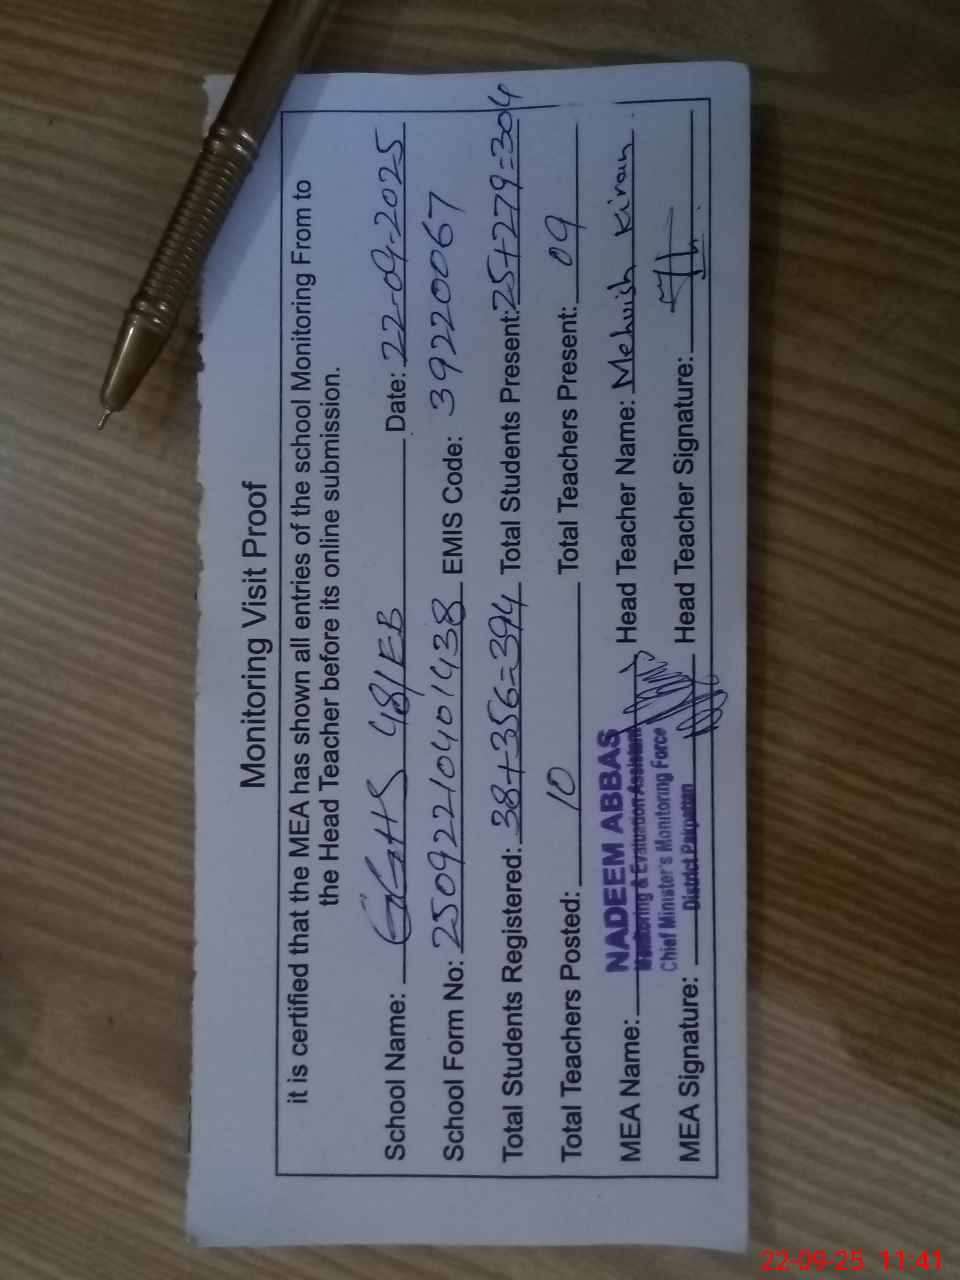 Monitoring Visit Proof
it is certified that the MEA has shown all entries of the school Monitoring From to
the Head Teacher before its online submission.
School Name: GGHS 48/EB Date: 22-09-2025
School Form No: 2509221040401438 EMIS Code: 39220067
Total Students Registered: 38+356=394 Total Students Present: 25+279=304
Total Teachers Posted: 10 Total Teachers Present: 09
MEA Name: NADEEM ABBAS Head Teacher Name: Mehvish Kiran
Monitoring & Evaluation Assistant
Chief Minister's Monitoring Force
MEA Signature: District Pakpattan Head Teacher Signature:
22-09-25 11:41